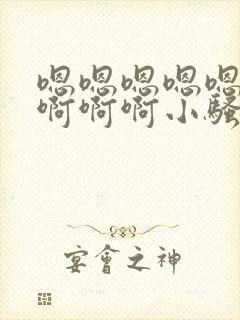 嗯嗯嗯嗯嗯
啊啊啊小骚
宴會之神